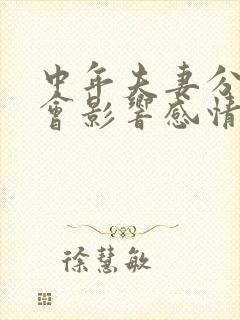 中年夫妻分
會影響感情
徐慧敏